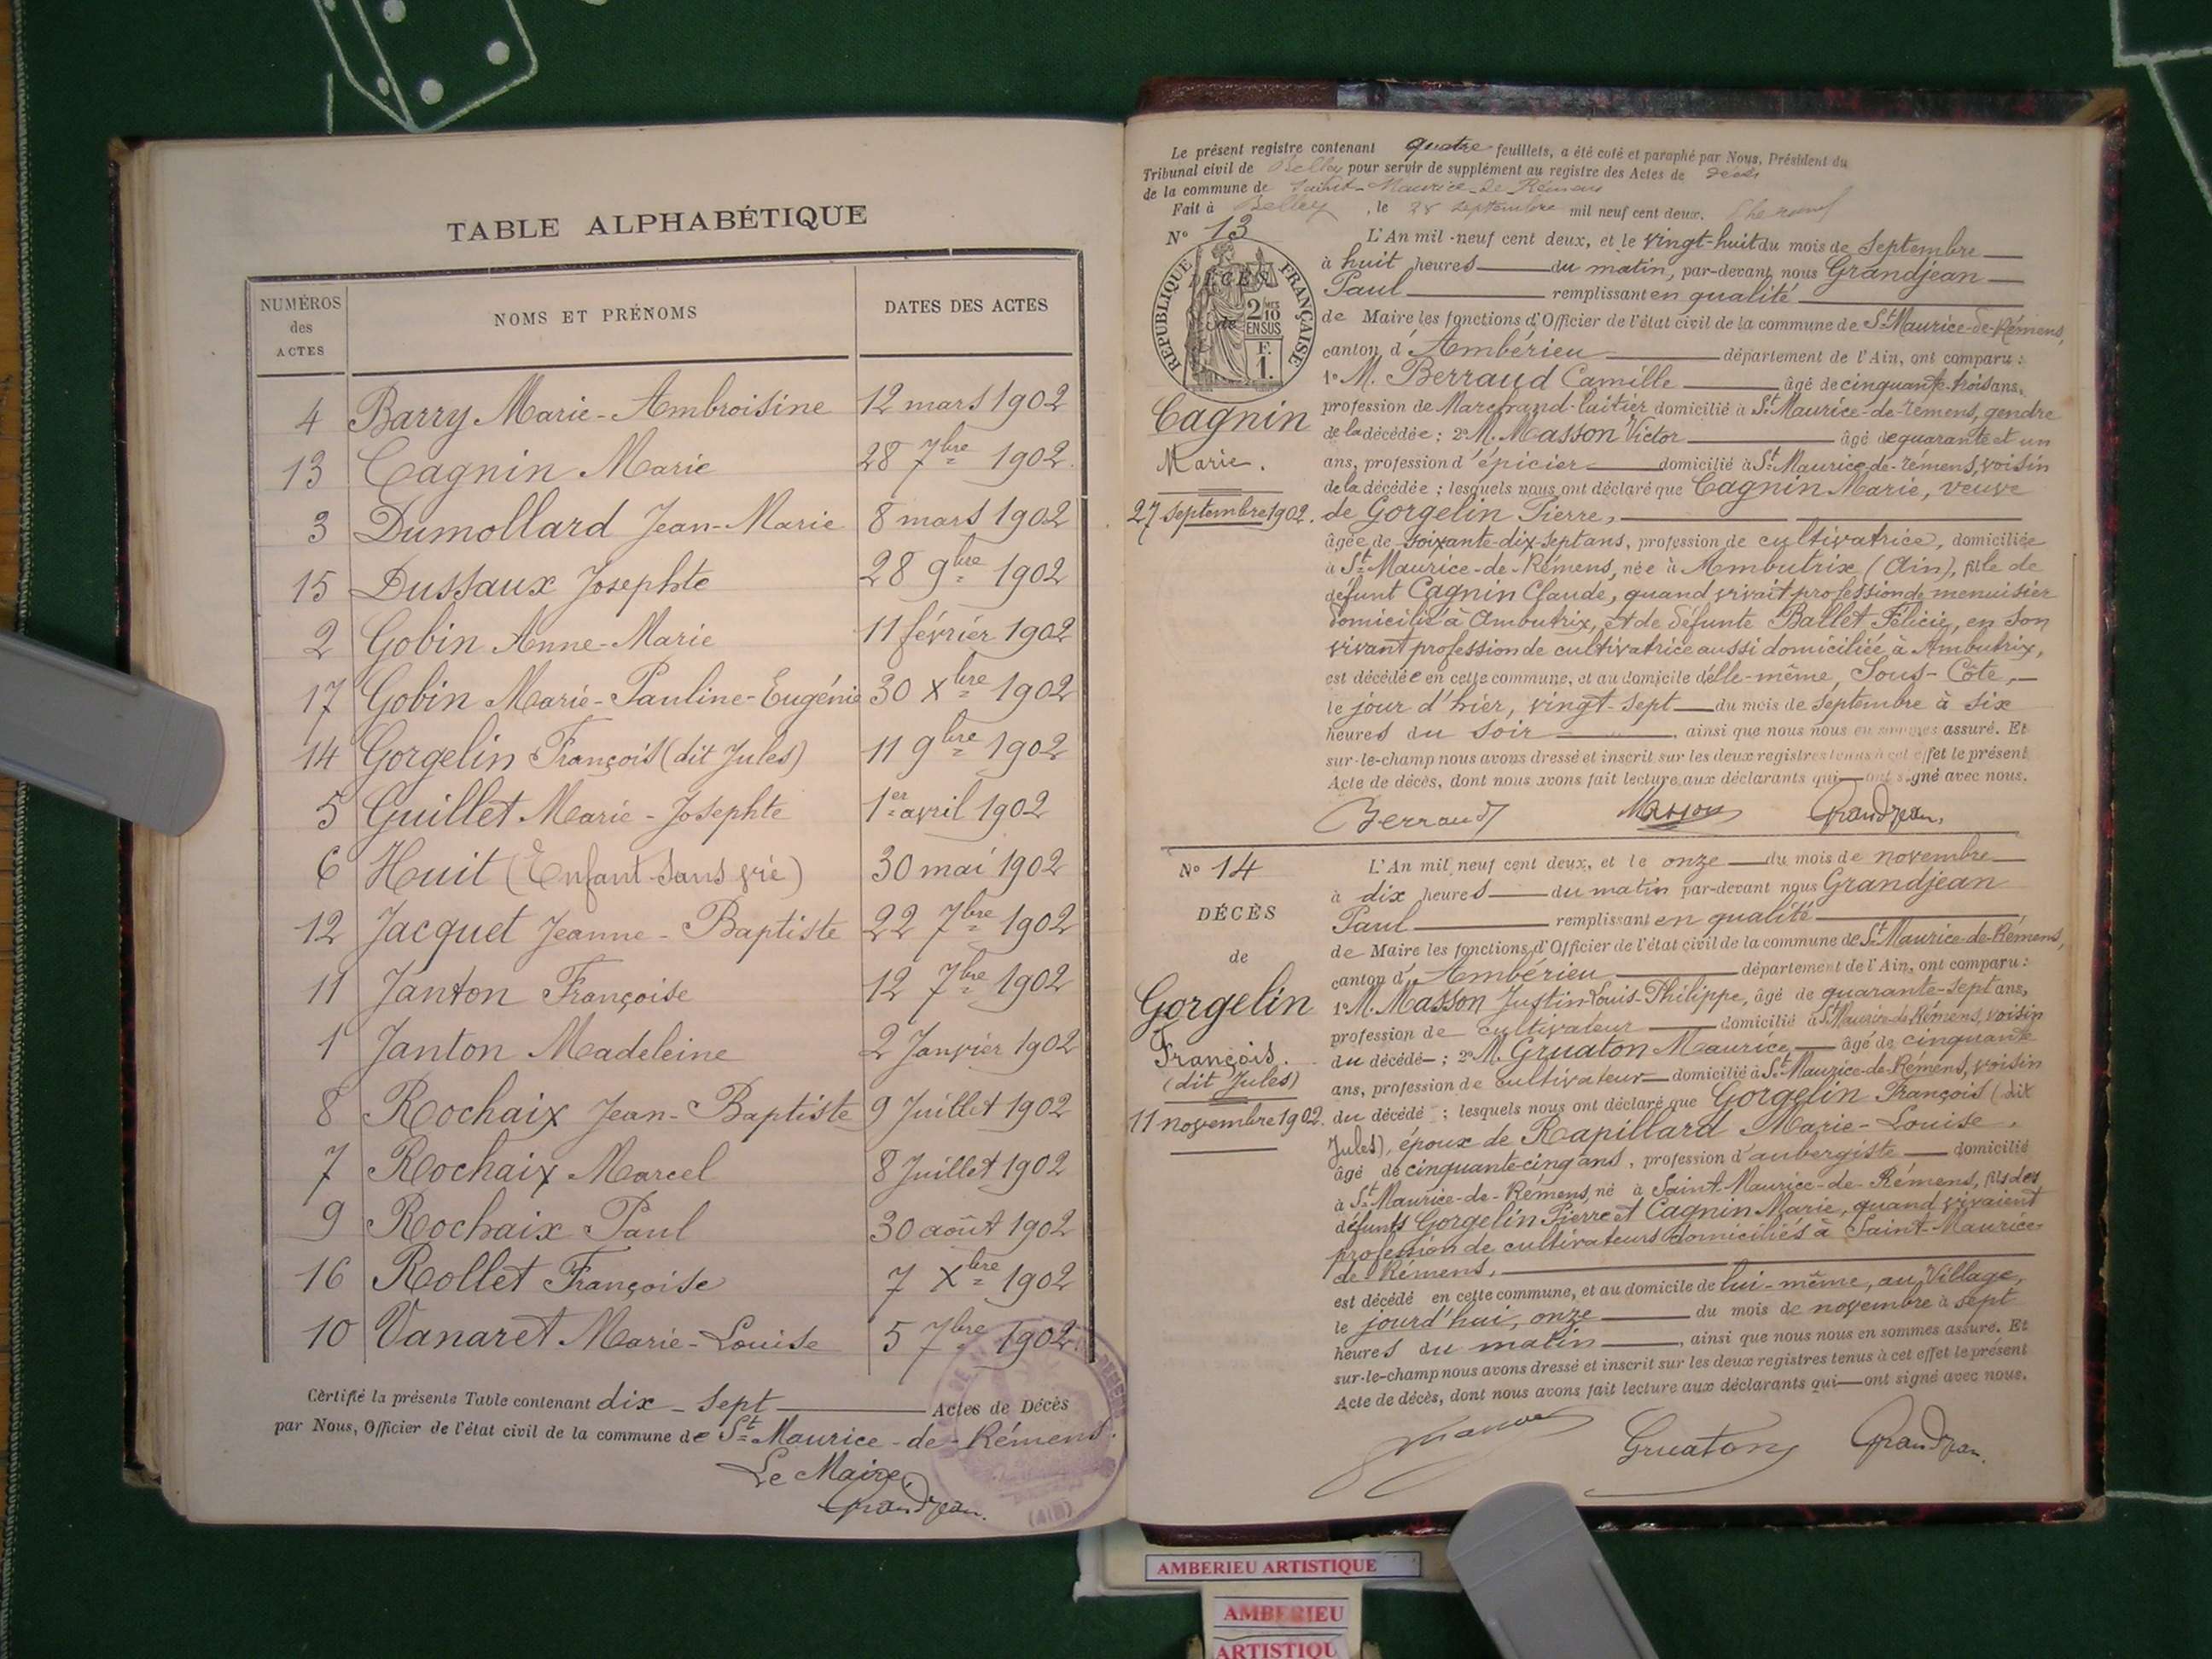 TABLE ALPHABÉTIQUE
NUMÉROS des ACTES
NOMS ET PRÉNOMS
DATES DES ACTES
4 Barry Marie-Ambroisine 12 mars 1902
13 Cagnin Marie 28 7bre 1902
3 Dumollard Jean-Marie 8 mars 1902
15 Dussaux Josephte 28 9bre 1902
2 Gobin Anne-Marie 11 février 1902
17 Gobin Marie-Pauline-Eugénie 30 Xbre 1902
14 Gorgelin François (dit Jules) 11 9bre 1902
5 Guillet Marie-Josephte 1er avril 1902
6 Huit (Enfant sans vie) 30 mai 1902
12 Jacquet Jeanne-Baptiste 22 7bre 1902
11 Janton Françoise 12 7bre 1902
1 Janton Madeleine 2 Janvier 1902
8 Rochaix Jean-Baptiste 9 Juillet 1902
7 Rochaix Marcel 8 Juillet 1902
9 Rochaix Paul 30 août 1902
16 Rollet Françoise 7 Xbre 1902
10 Vanaret Marie-Louise 5 7bre 1902
Certifié la présente Table contenant dix-sept Actes de Décès
par Nous, Officier de l'état civil de la commune de St Maurice-de-Rémens.
Le Maire,
Grandjean.
(AIN)
Le présent registre contenant quatre feuillets, a été coté et paraphé par Nous, Président du
Tribunal civil de Belley pour servir de supplément au registre des Actes de décès
de la commune de Saint-Maurice-de-Rémens
Fait à Belley, le 28 septembre mil neuf cent deux.
No 13
RÉPUBLIQUE FRANÇAISE
DÉCÈS
de
2/10mes EN SUS
F. 1.
Cagnin
Marie.
27 septembre 1902.
L'An mil-neuf cent deux, et le vingt-huit du mois de septembre
à huit heures du matin, par-devant nous Grandjean
Paul remplissant en qualité
de Maire les fonctions d'Officier de l'état civil de la commune de St Maurice-de-Rémens,
canton d'Ambérieu département de l'Ain, ont comparu :
1o M. Berraud Camille âgé de cinquante-trois ans,
profession de Marchand-laitier domicilié à St Maurice-de-rémens, gendre
de la décédée ; 2o M. Masson Victor âgé de quarante et un
ans, profession d'épicier domicilié à St Maurice-de-rémens, voisin
de la décédée ; lesquels nous ont déclaré que Cagnin Marie, veuve
de Gorgelin Pierre,
âgée de soixante-dix-sept ans, profession de cultivatrice, domiciliée
à St Maurice-de-Rémens, née à Ambutrix (Ain), fille de
défunt Cagnin Claude, quand vivait profession de menuisier
domicilié à Ambutrix, et de défunte Ballet Félicie, en son
vivant profession de cultivatrice aussi domiciliée à Ambutrix,
est décédée en cette commune, et au domicile d'elle-même, Sous-Côte,
le jour d'hier, vingt-sept du mois de septembre à six
heures du soir, ainsi que nous nous en sommes assuré. Et
sur-le-champ nous avons dressé et inscrit sur les deux registres tenus à cet effet le présent
Acte de décès, dont nous avons fait lecture aux déclarants qui ont signé avec nous.
Berraud Masson Grandjean.
No 14
DÉCÈS
de
Gorgelin
François.
(dit Jules)
11 novembre 1902.
L'An mil neuf cent deux, et le onze du mois de novembre
à dix heures du matin par-devant nous Grandjean
Paul remplissant en qualité
de Maire les fonctions d'Officier de l'état civil de la commune de St Maurice-de-Rémens,
canton d'Ambérieu département de l'Ain, ont comparu :
1o M. Masson Justin-Louis-Philippe, âgé de quarante-sept ans,
profession de cultivateur domicilié à St Maurice-de-Rémens, voisin
du décédé ; 2o M. Gruaton Maurice, âgé de cinquante
ans, profession de cultivateur domicilié à St Maurice-de-Rémens, voisin
du décédé ; lesquels nous ont déclaré que Gorgelin François (dit
Jules), époux de Rapillard Marie-Louise,
âgé de cinquante-cinq ans, profession d'aubergiste domicilié
à St Maurice-de-Rémens, né à Saint-Maurice-de-Rémens, fils des
défunts Gorgelin Pierre et Cagnin Marie, quand vivaient
profession de cultivateurs domiciliés à Saint-Maurice-
de-Rémens,
est décédé en cette commune, et au domicile de lui-même, au Village,
le jourd'hui, onze du mois de novembre à sept
heures du matin, ainsi que nous nous en sommes assuré. Et
sur-le-champ nous avons dressé et inscrit sur les deux registres tenus à cet effet le présent
Acte de décès, dont nous avons fait lecture aux déclarants qui ont signé avec nous.
Gruaton Grandjean.
AMBERIEU ARTISTIQUE
AMBERIEU
ARTISTIQU